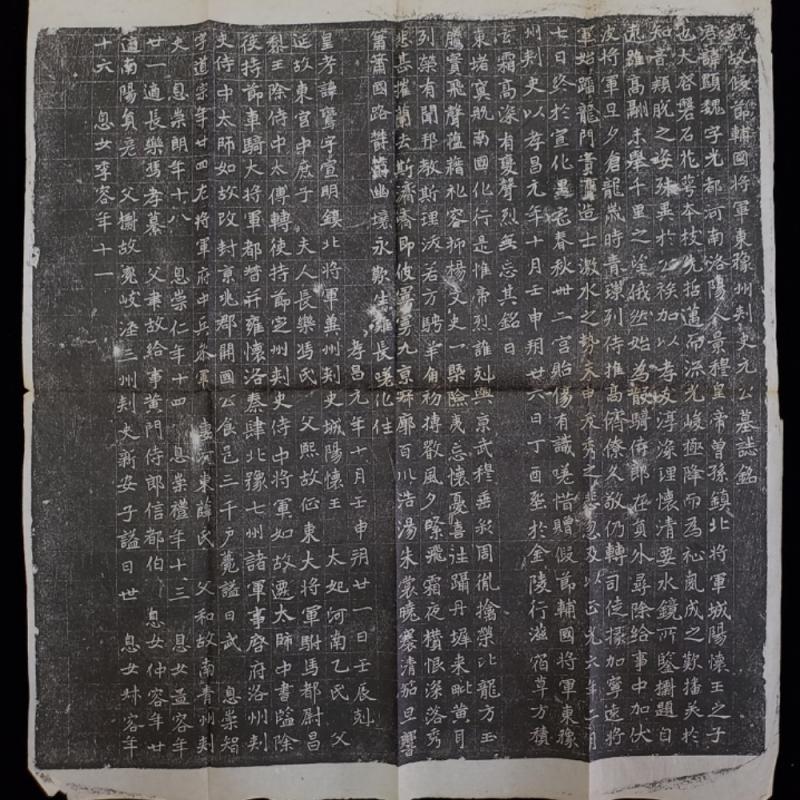 魏故假節輔國將軍東豫州刺史元公墓誌銘
君諱顯魏字光都河南洛陽人景穆皇帝曾孫鎮北將軍城陽懷王之子
也大啓磐石花萼本枝先哲邁而流光峻極降而為祉夙成之歎播美於
知音穎脫之姿殊異於公族加以孝友淳深理懷清要水鏡所鑒擲題自
遠雖高翮未舉千里之塗俄然始為散騎侍郎在員外尋除給事中加伏
波將軍旦夕倉龍歲時青璅列侍推高儕僚久敬仍轉司徒掾加寧遠將
軍始踏龍門實唯造士激水之勢未申夜舟之悲忽及以正光六年二月
七日終於宣化里宅春秋卌二言貽傷有識嗟惜贈假節輔國將軍東豫
州刺史以孝昌元年十月壬申朔廿六日丁酉窆於金陵行遊宿草方積
泫霜高深有變聲烈無忘其銘曰
東堵寞觀南國化行是惟帝烈誰列與京武穆垂祉周胤擒榮比龍方玉
騰實飛聲蘊藉礼容抑揚文史一槩險夷忘懷憂喜迬躡丹墀來毗黃耳
列榮有聞邦教斯理派若方騁羊角初摶欻風夕緊飛霜夜攢恨深落秀
悲甚摧蘭去斯濟濟即彼 九京 廓百川浩湯朱裳曉褰清笳旦響
簫簫國路欝欝幽埏永歎生離長嗟化往
孝昌元年十月壬申朔廿一日壬辰刻
皇考諱鸞字宣明鎮北將軍冀州刺史城陽懷王 太妃河南乙氏 父
延故東宮中庶子 夫人長樂馮氏 父熙故征東大將軍駙馬都尉昌
黎王除侍中太傅轉使持節定州刺史侍中將軍如故遷太師中書監除
使持節車騎大將軍都督并雍懷洛秦肆北豫七州諸軍事啓府洛州刾
史侍中太師如故改封京兆郡開國公食邑三千戶薨謚曰武 息崇智
字道宗年廿四左將軍府中兵參軍 妻河東薛氏 父和故南青州刾
史 息崇朗年十八 息崇仁年十四 息崇禮年十三 息女孟容年
廿一適長樂馮孝纂 父聿故給事黃門侍郎信都伯 息女仲容年廿
適南陽員彥 父標故兗岐涇三州刾史新安子謚曰世 息女叔容年
十六 息女季容年十一